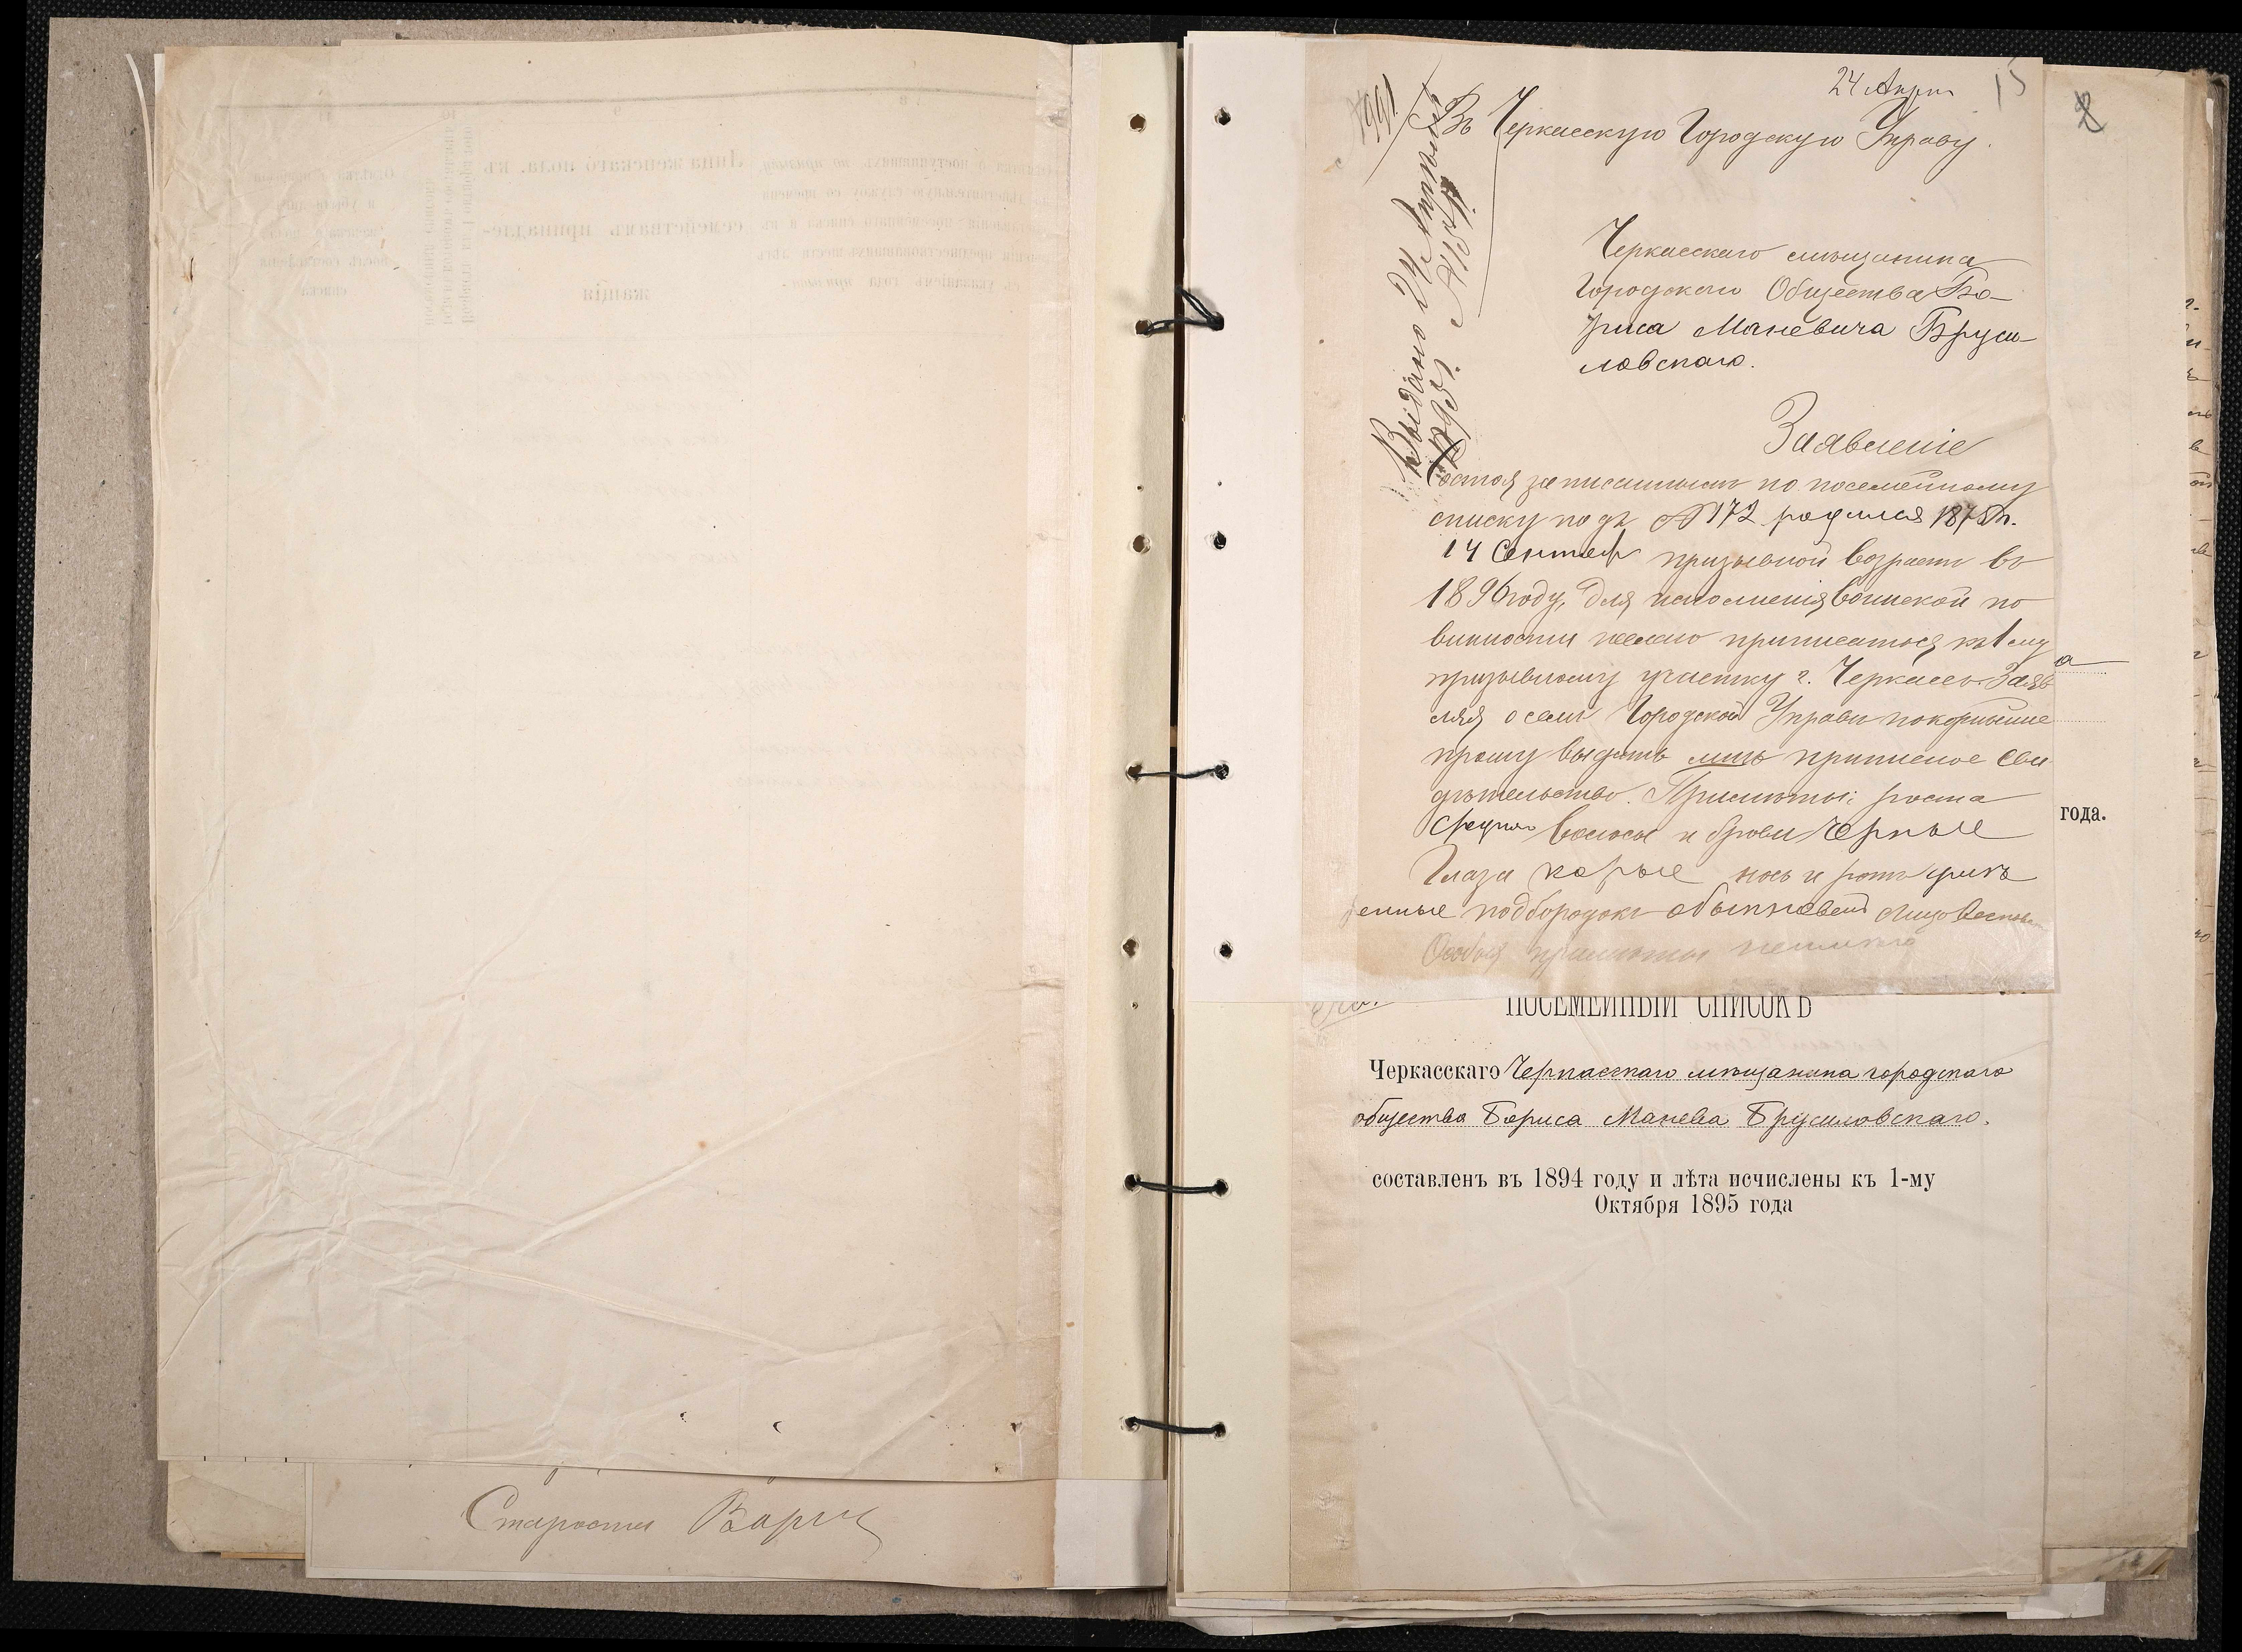 Староста
24 Апрл
15
Въ Черкасскую Городскую Управу.
Выдано 24 Апрѣля
1895 г.
Черкасскаго мѣщанина
Городского Общества Бо-
риса Маневича Бруси-
ловскаго.
Заявленіе
Состоя записаннымъ по посемейному
списку подъ № 172 родился 1875 г.
14 Сентяб призывной возрастъ въ
1896 году, для исполненія воинской по
винности желаю приписаться къ 1 му
призывному участку г. Черкассъ. Заяв
ляя о семъ Городской Управѣ покорнѣйше
прошу выдать мнѣ приписное Сви
дѣтельство. Примѣты: роста
средняго Волосы и брови черные
Глаза карые носъ и ротъ умѣр
енные подбородокъ обыкновен Лицо
Особыя примѣты
ПОСЕМЕЙНЫЙ СПИСОКЪ
Черкасскаго Черкасскаго мѣщанина городскаго
общества Бориса Манева Брусиловскаго.
составленъ въ 1894 году и лѣта исчислены къ 1-му
Октября 1895 года
года.